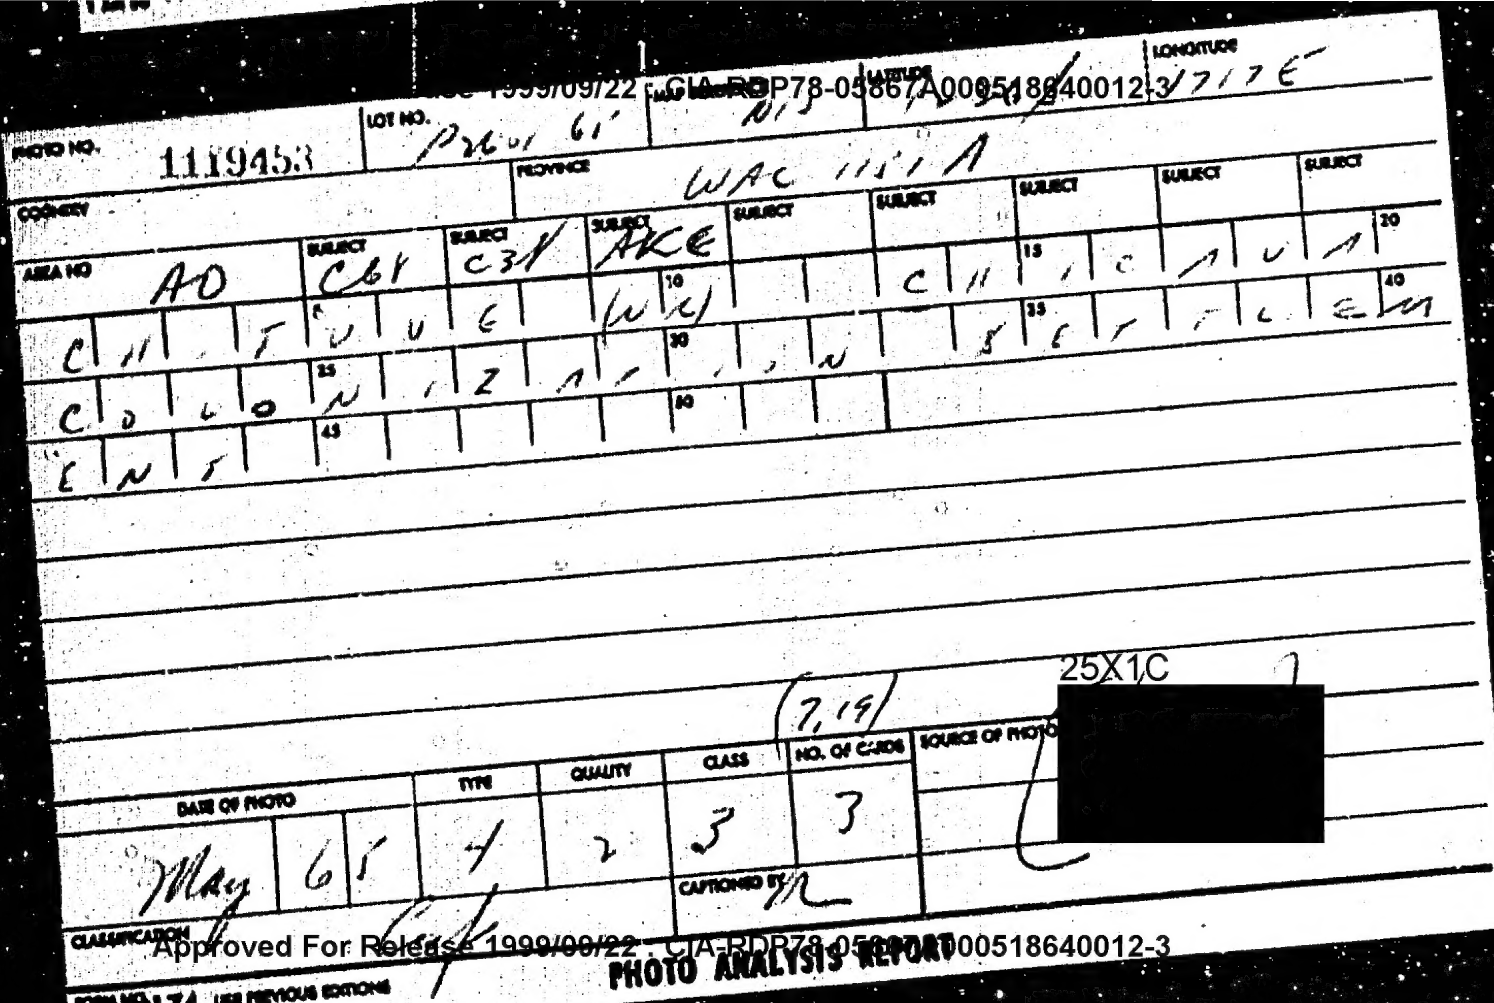 Release 1999/09/22 : CIA-RDP78-05867A000518640012-3
PHOTO NO. 1119453 LOT NO. 65 NIS LATITUDE LONGITUDE 1717E
COUNTRY PROVINCE WAC
AREA NO AD SUBJECT C68 SUBJECT C38 SUBJECT AKE SUBJECT SUBJECT SUBJECT SUBJECT SUBJECT
CHITUUE (NK) 10 CHICAUA 15 20
COLONIZATIION 25 30 SETTLEM 35 40
ENT 45 50
25X1C
(7,19)
DATE OF PHOTO TYPE QUALITY CLASS NO. OF CARDS SOURCE OF PHOTO
May 65 4 2 3 3
CAPTIONED BY
CLASSIFICATION
Approved For Release 1999/09/22 : CIA-RDP78-05867A000518640012-3
PHOTO ANALYSIS REPORT
FORM NO. USE PREVIOUS EDITIONS